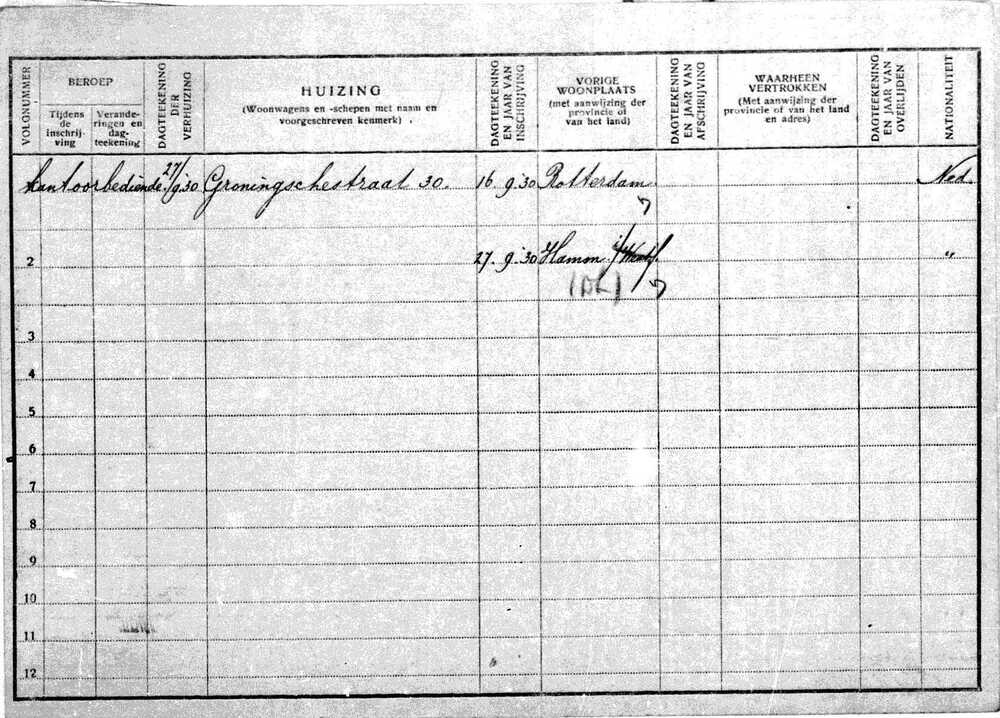 VOLGNUMMER
BEROEP
Tijdens
de
inschrij-
ving
Verande-
ringen en
dag-
teekening
DAGTEEKENING
DER
VERHUIZING
HUIZING
(Woonwagens en -schepen met naam en
voorgeschreven kenmerk)
DAGTEEKENING
EN JAAR VAN
INSCHRIJVING
VORIGE
WOONPLAATS
(met aanwijzing der
provincie of
van het land)
DAGTEEKENING
EN JAAR VAN
AFSCHRIJVING
WAARHEEN
VERTROKKEN
(Met aanwijzing der
provincie of van het land
en adres)
DAGTEEKENING
EN JAAR VAN
OVERLIJDEN
NATIONALITEIT
Kantoorbediende 27/9.'30 Groningschestraat 30. 16. 9.'30 Rotterdam Ned.
2 27. 9.'30 Hamm i/Westf. "
3
4
5
6
7
8
9
10
11
12